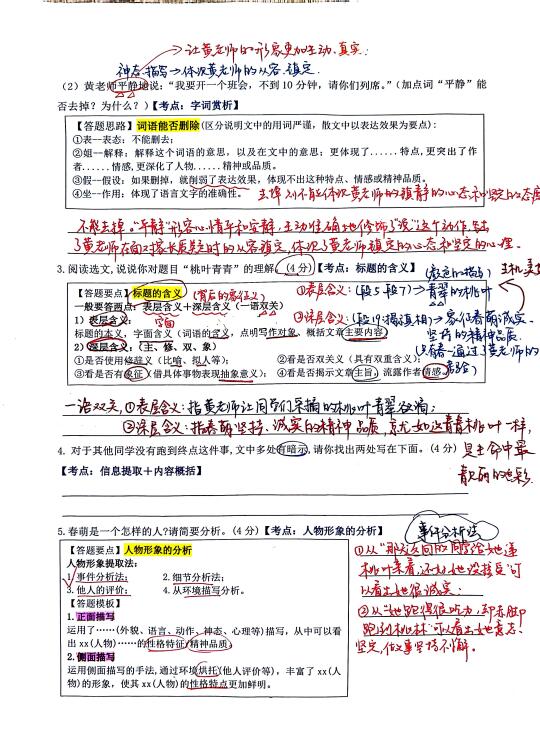 让黄老师的形象更加生动、真实.
神态描写→体现黄老师的从容、镇定.
（2）黄老师平静地说：“我要开一个班会，不到 10 分钟，请你们列席。”（加点词“平静”能
否去掉？为什么？）【考点：字词赏析】
【答题思路】词语能否删除(区分说明文中的用词严谨，散文中以表达效果为要点):
①表--表态：不能删去；
②姐--解释：解释这个词语的意思，以及在文中的意思；更体现了......特点,更突出了作
者......情感,更深化了人物......精神或品质。
③假--假设：如果删掉，就削弱了表达效果，体现不出这种特点、情感或精神品质。
④坐--作用：体现了语言文字的准确性。
去掉则不能体现黄老师的镇静的心态和坚定的态度
不能去掉。“平静”形容心情平和安静，生动准确地修饰了“说”这个动作,
了黄老师在面对家长质疑时的从容镇定，体现了黄老师镇定的心态和坚定的心理.
3. 阅读选文,说说你对题目“桃叶青青”的理解。（4分）【考点：标题的含义】
【答题要点】标题的含义 (背后的象征义)
一般要答两点：表层含义+深层含义（一语双关）
1）表层含义：
标题的本义，字面含义（词语的含义，点明写作对象、概括文章主要内容）
2）深层含义：（主、修、双、象）
①是否使用修辞义（比喻、拟人等）； ②看是否双关义（具有双重含义）；
③看是否有象征（借具体事物表现抽象意义）； ④看是否揭示文章主旨，流露作者情感。
①表层含义：(段5 段7)→青翠的桃叶
②深层含义：(段19揭示真相)→象征春萌诚实、
坚持的精神品质.
一语双关，①表层含义：指黄老师让同学们采摘的桃叶青翠欲滴；
②深层含义：指春萌坚持、诚实的精神品质，就如这青青桃叶一样，
是生命中最
靓丽的色彩.
4. 对于其他同学没有跑到终点这件事,文中多处有暗示,请你找出两处写在下面。（4 分）
【考点：信息提取＋内容概括】
5. 春萌是一个怎样的人?请简要分析。（4分）【考点：人物形象的分析】
事件分析法
【答题要点】人物形象的分析
人物形象提取法:
1. 事件分析法； 2. 细节分析法；
3. 他人的评价； 4. 从环境描写分析。
【答题模板】
1.正面描写
运用了……(外貌、语言、动作、神态、心理等)描写，从中可以看
出 xx(人物)……的性格特征(精神品质)。
2.侧面描写
运用侧面描写的手法,通过环境烘托(他人评价等)，丰富了 xx(人
物)的形象，使其 xx(人物)的性格特点更加鲜明。
①从“那天返回的同学给她递
桃叶来着，还……她没接受”可
以看出她很诚实；
②从“她跑得很吃力，却亦
跑到桃林”可以看出她意志
坚定，做事坚持不懈。